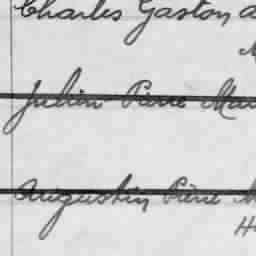 Charles Gaston
Julien Pierre Mau
Augustin Pierre M